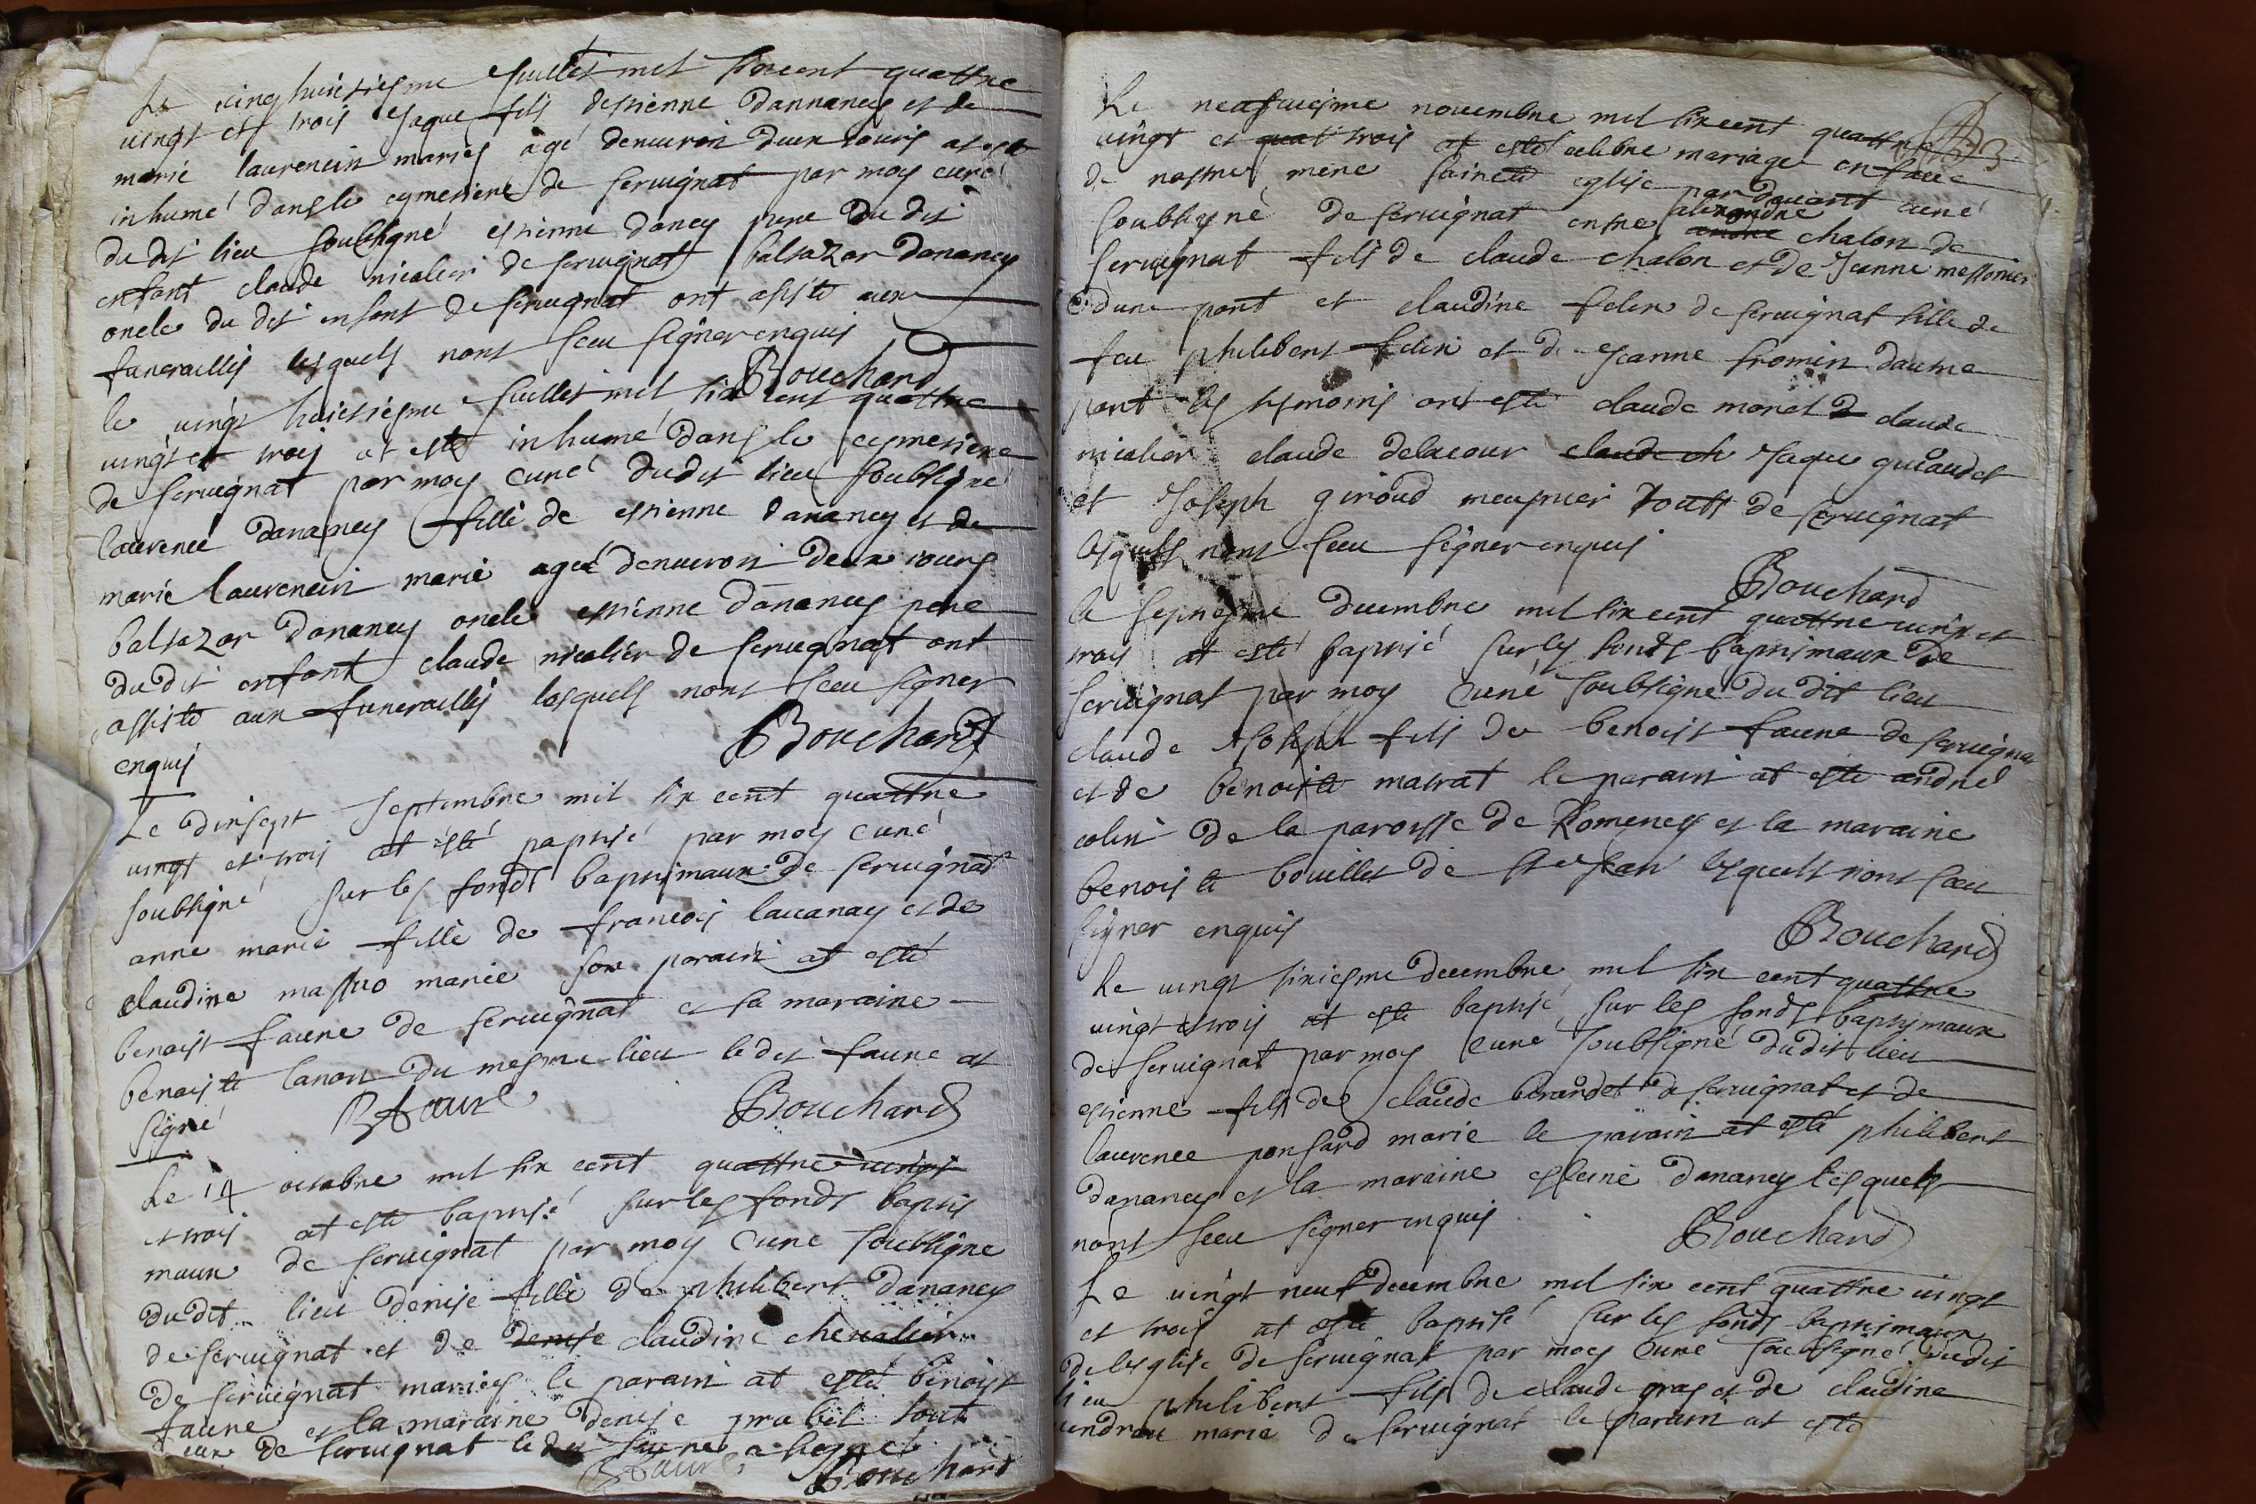 Le ving huictiesme Juillet mil sixcent quattre
vingt et trois Jaque fils destienne dannancy et de
marie laurencin mariés agé denuiron deux iours at este
inhumé dans le cymetiere de seruignat par moy curé
du dit lieu soubsigné estienne dancy pere du dit
enfant claude nicolier de seruignat baltazar danancy
oncle du dit enfant de seruignat ont asisté aux
funerailles lesquels nont sceu signer enquis
Bouchard
le uingt huictiesme Juillet mil six cent quattre
uingt et trois at esté inhumé dans le cymetiere
de seruignat par moy curé du dit lieu soubsigné
laurence danancy fille de estienne danancy et de
marie laurencin marie agée denuiron deux iours
baltazar danancy oncle estienne danancy pere
du dit enfant claude nicolier de seruignat ont
assisté aux funerailles lesquels nont sceu signer
enquis
Bouchard
Le dixsept septembre mil six cent quattre
uingt et trois at esté paptisé par moy curé
soubsigné sur les fonds baptismaux de seruignat
anne marie fille de francois lauanay et de
claudine marie son parain at esté
benoist faure de seruignat et sa maraine
benoiste lanon du mesme lieu ledit faure at
signé
B faure
Bouchard
Le 14 octobre mil six cent quattre uingt
et trois at esté baptisé sur les fonds baptis
maux de seruignat par moy curé soubsigné
du dit lieu denise fille de philibert danancy
de seruignat et de denise claudine cheualier
de seruignat mariés le parain at esté benoist
faure et la maraine denise prabel tout
eux de seruignat ledit faure a signé
B faure
Bouchard
Le neufuiesme nouembre mil sixcent quattre
uingt et quat trois at esté celebre mariage en face
de nostre mere saincte eglise par deuant curé
soubsigné de seruignat entre alexandre
andre chalon de
seruignat fils de claude chalon et de Jeanne messonier
dune part et claudine felix de seruignat fille de
feu philibert felix et de Jeanne fromin dautre
part les tesmoins ont esté claude morel 2 claude
nicolier claude delacour claude ch Jaque guiaudet
et Joseph giroud meusnier touts de seruignat
lesquels nont sceu signer enquis
Bouchard
le septiesme decembre mil sixcent quattre uingt et
trois at esté baptisé sur les fonds baptismaux de
seruignat par moy curé soubsigné du dit lieu
claude Joseph fils de benoist faure de seruignat
et de benoiste matrat le parain at esté andré
colin de la paroisse de Romeney et la maraine
benoiste bouillet de St Jean lesquels nont sceu
signer enquis
Bouchard
Le uingt sixiesme decembre mil six cent quattre
uingt et trois at esté baptisé sur les fonds baptismaux
de seruignat par moy curé soubsigné du dit lieu
estienne fils de claude berandet de seruignat et de
laurence ponsard marie le parain at esté philibert
danancy et la maraine danancy lesquels
nont sceu signer enquis
Bouchard
Le uingt neuf decembre mil six cent quattre uingt
et trois at esté baptisé sur les fonds baptismaux
de leglise de seruignat par moy curé soubsigné du dit
lieu philibert fils de claude gras et de claudine
marie de seruignat le parain at esté